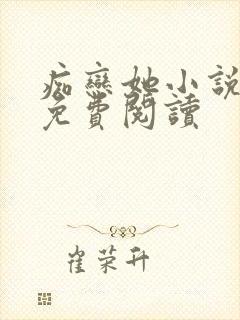 痴戀她小說
免費閱讀
崔荣升